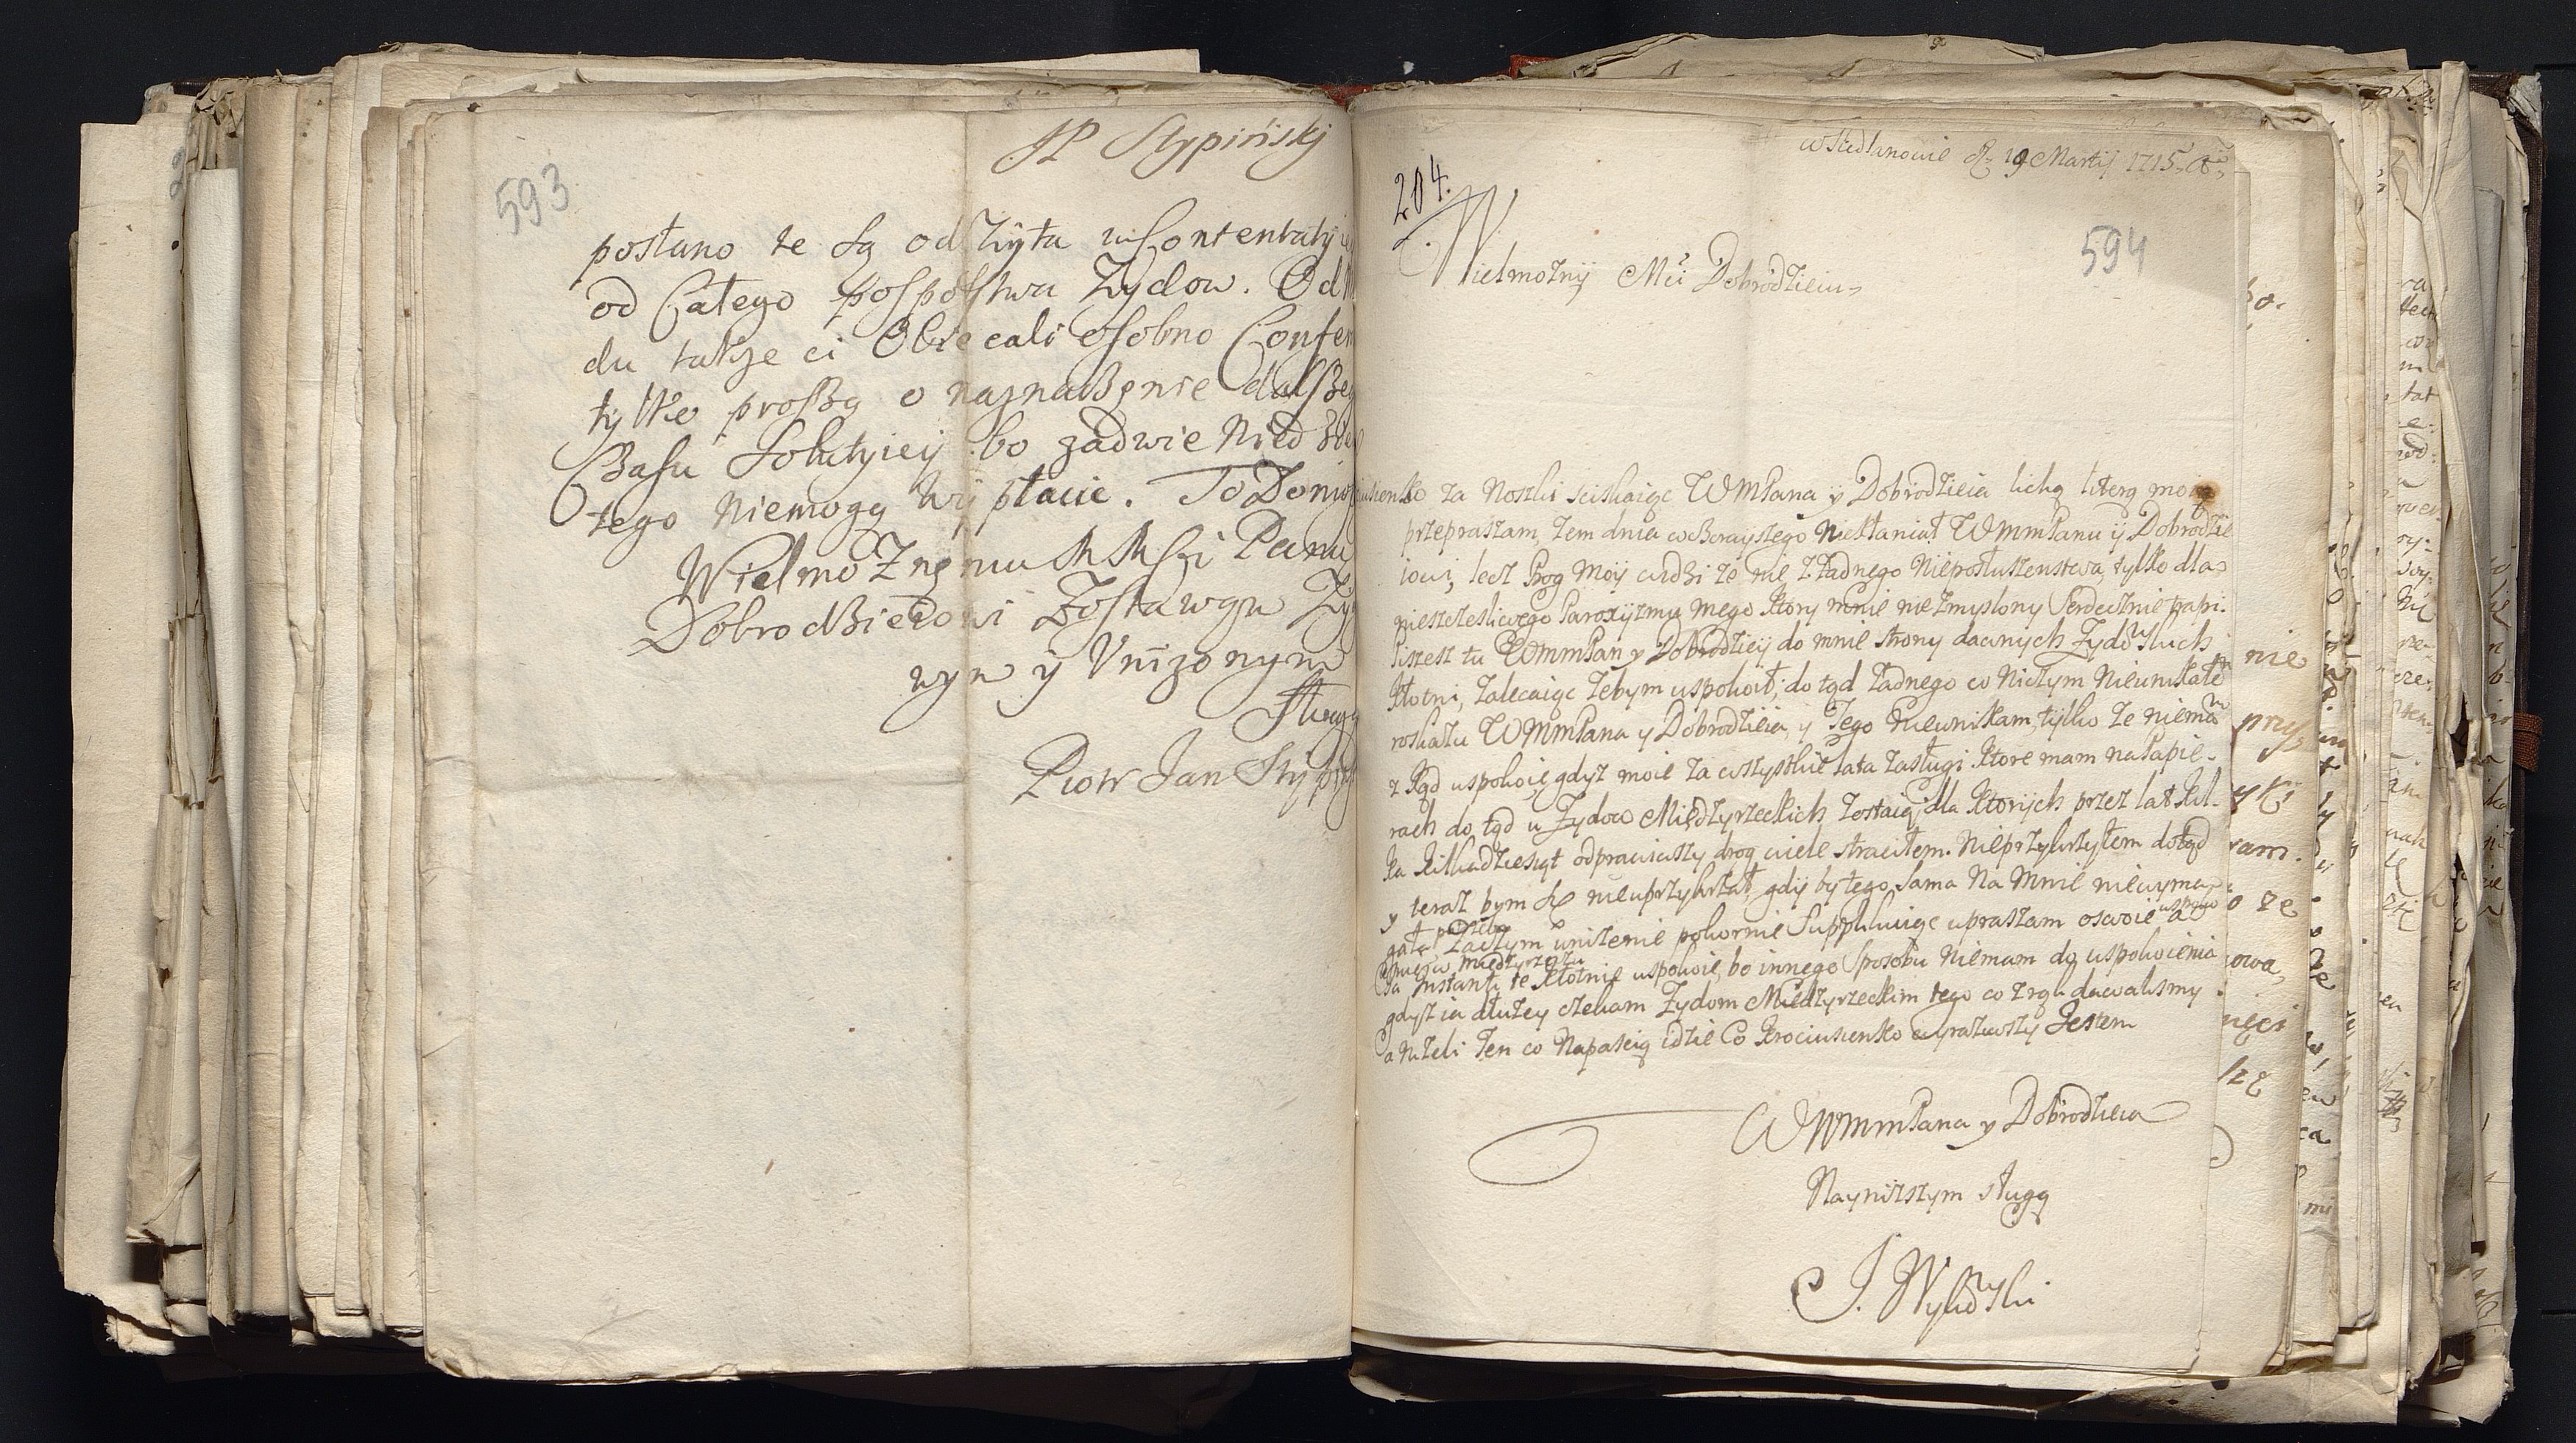 JP Stypińskj
593
postano że są od Zyta w Contentatij
od Całego pospolstwa Zydow. Od
du takze ci Obiecali osobno Conten
tylko proszą o naznaczenie dalszeg
Czasu Solutyiej bo zadwie Niedziel
tego Niemogą Wypłacic. To Donios
Wielmożnemu Panu
Dobrodzieiowi Zostawam Zy
wym ÿ Unizonym
Sługą
Piotr Jan Stypiń
19 Martij 1715
204.
594
Wielmożnÿ Mći Dobrodzieiu
za Noszki sciskaiąc WMPana y Dobrodzieia lichą literą moią
przepraszam, zem dnia wczorayszego Niekłaniał WMMPanu ÿ Dobrodzie
iowi, lecz Bog moÿ widzi ze nie z Zadnego Nieposłuszenstwa, tylko dla
nieszczesliwego Paroxyzmu mego Ktory mnie nie zmyslony Serdecznie trapi.
Piszesz tu WMMPan y Dobrodzieÿ do mnie strony dawnych Zydowskich
Kłotni, Zalecaiąc Zebym uspokoił; do tąd Zadnego co Niczym Nieunikałem
roskazu WMMPana y Dobrodzieia, y Tego Nieunikam, tÿlko ze niemam
z Kąd uspokoic, gdyz moie za wszystkie lata Zasługi Ktore mam na Papie-
rach do tąd u Zydow Miedzyrzeckich Zostaią, dla Ktorÿch przez lat Kil-
ka Kilkadziesiąt odprawiwszy drog wiele straciłem. Nieprzykrzyłem dotąd
y teraz bym Się nieuprzykrzał, gdÿ by tego Sama Na Mnie niewyma-
gała potrzeba. Zaczym unizenie pokornie Supplikuiąc upraszam oswoie
w Miedzyrzeczu
za Instantią te Kłotnie uspokoic, bo innego Sposobu Niemam do uspokoienia
gdyz ia dłuzey czekam Zydom Miedzyrzeckim tego co z rąk dawalismy
a nizeli Ten co Napaścią idzie Co Krociusienko wyraziwszy Jestem
WMMPana y Dobrodzieia
Naynizszym sługą
J.